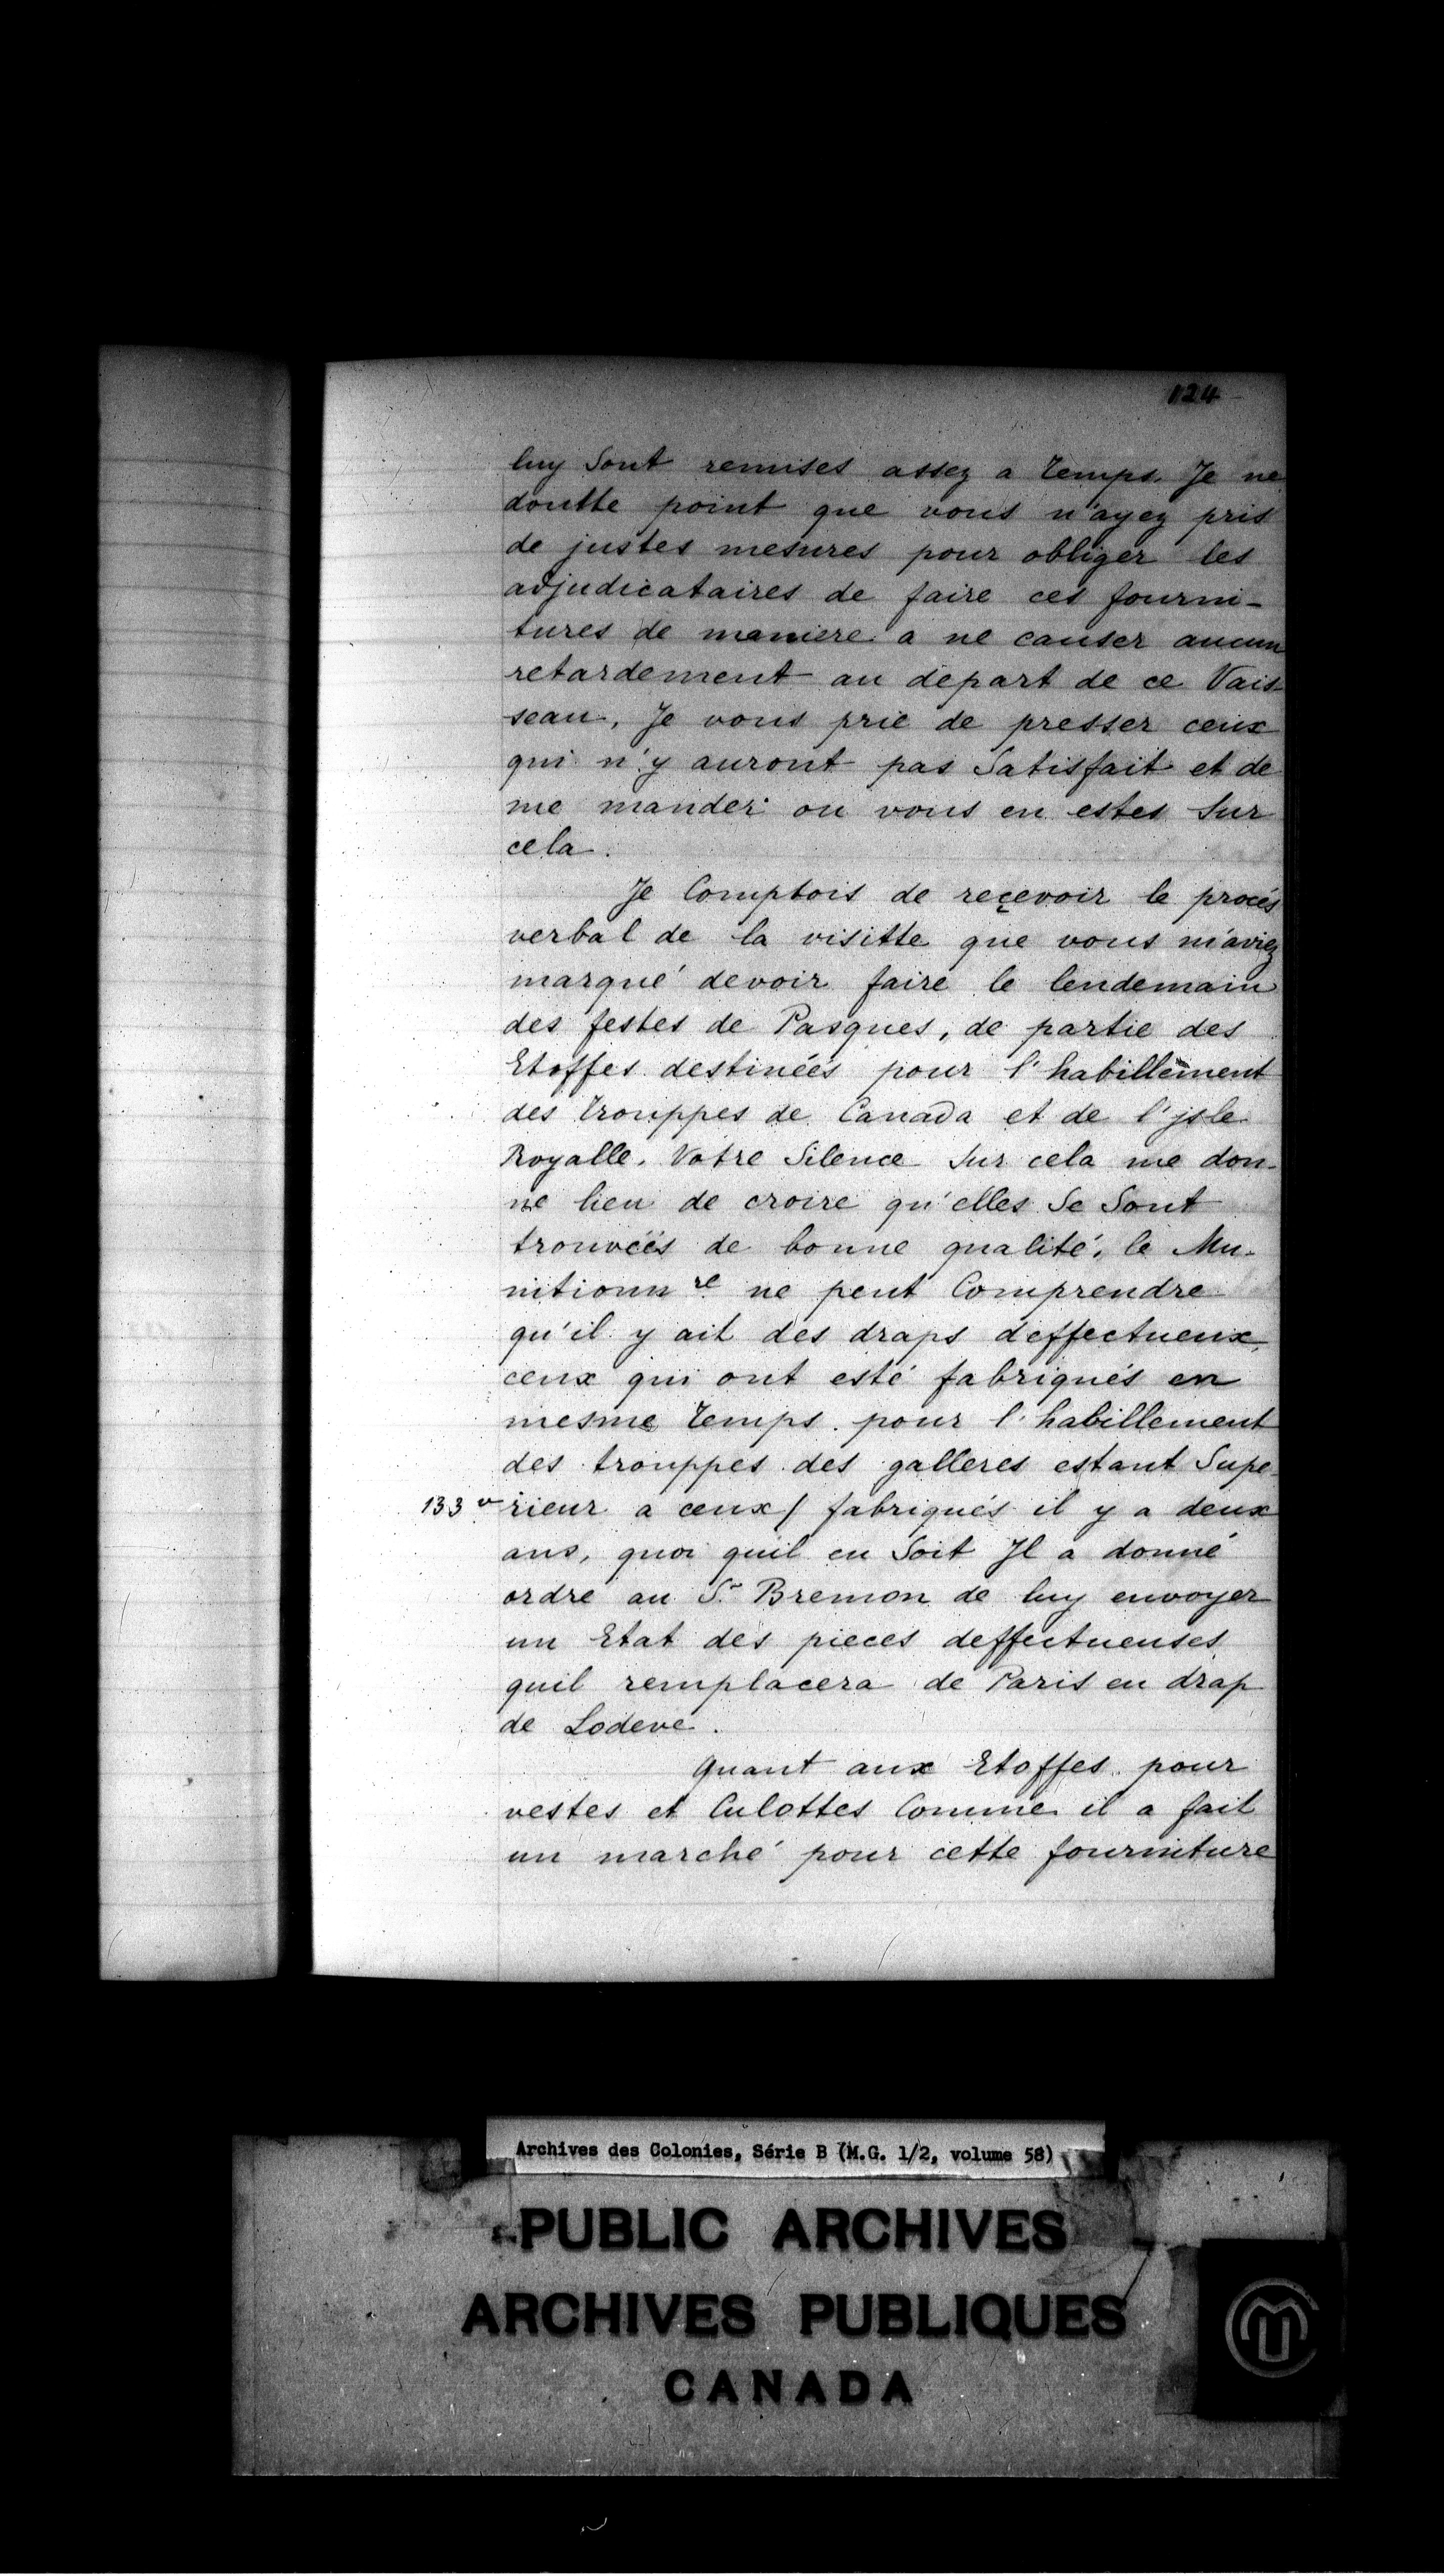 124
luy Sont remises assez a temps. Je ne
doutte point que vous n'ayez pris
de justes mesures pour obliger les
adjudicataires de faire ces fourni-
tures de maniere a ne causer aucun
retardement au départ de ce Vais-
seau, Je vous prie de presser ceux
qui n'y auront pas Satisfait et de
me mander ou vous en estes Sur
cela.
Je Comptois de reçevoir le procés
verbal de la visitte que vous m'aviez
marqué devoir faire le lendemain
des festes de Pasques, de partie des
Etoffes destinéés pour l'habillement
des trouppes de Canada et de l'jsle
Royalle. Votre Silence Sur cela me don-
ne lieu de croire qu'elles Se Sont
trouvéés de bonne qualité, le Mu-
nitionnre ne peut Comprendre
qu'il y ait des draps deffectueux,
ceux qui ont esté fabriqués en
mesme temps pour l'habillement
des trouppes des galleres estant Supe-
133 v rieur a ceux/ fabriqués il y a deux
ans, quoi quil en Soit Jl a donné
ordre au Sr Bremon de luy envoyer
un Etat des pieces deffectueuses
quil remplacera de Paris en drap
de Lodeve.
Quant aux Etoffes pour
vestes et Culottes Comme il a fait
un marché pour cette fourniture
Archives des Colonies, Série B (M.G. 1/2, volume 58)
PUBLIC ARCHIVES
ARCHIVES PUBLIQUES
CANADA